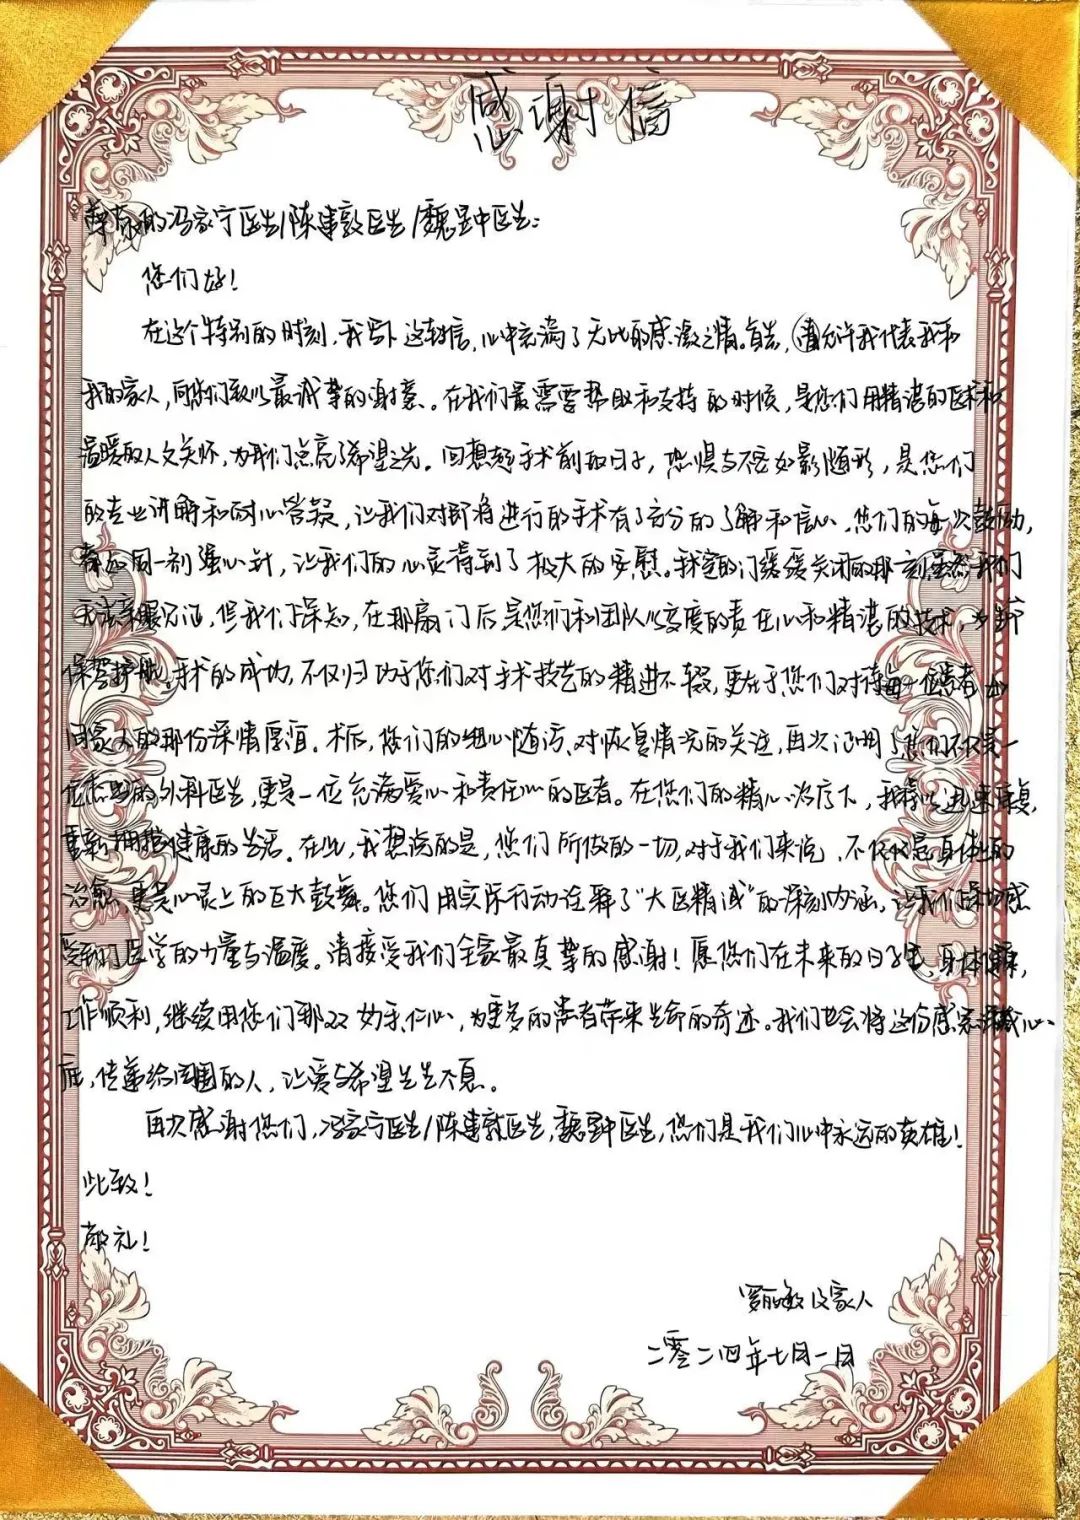 感谢信
尊敬的冯家宁医生/陈建敦医生/魏昱中医生:
您们好!
在这个特别的时刻,我写下这封信,心中充满了无比的感激之情。首先,请允许我代表我和
我的家人,向您们致以最诚挚的谢意。在我们最需要帮助和支持的时候,是您们用精湛的医术和
温暖的人文关怀,为我们点亮了希望之光。回想起手术前的日子,恐惧与不安如影随形,是您们
的专业讲解和耐心答疑,让我们对即将进行的手术有了充分的了解和信心。您们的每次鼓励,
都如同一剂强心针,让我们的心灵得到了极大的安慰。手术室的门缓缓关闭的那一刻,虽然我们
无法亲眼见证,但我们深知,在那扇门后是您们和团队以高度的责任心和精湛的技术,为
保驾护航。手术的成功,不仅归功于您们对手术技艺的精进不辍,更在于您们对待每一位患者如
同家人的那份深情厚谊。术后,您们的细心随访、对恢复情况的关注,再次证明了您们不仅是一
位杰出的外科医生,更是一位充满爱心和责任心的医者。在您们的精心治疗下,我得以迅速康复,
重新拥抱健康的生活。在此,我想说的是,您们所做的一切,对于我们来说,不仅仅是身体上的
治愈,更是心灵上的巨大鼓舞。您们用实际行动诠释了"大医精诚"的深刻内涵,让我们深切感
受到了医学的力量与温度。请接受我们全家最真挚的感谢!愿您们在未来的日子里,身体健康,
工作顺利,继续用您们那双妙手仁心,为更多的患者带来生命的奇迹。我们也会将这份感恩深藏心
底,传递给周围的人,让爱与希望生生不息。
再次感谢您们,冯家宁医生/陈建敦医生,魏昱中医生,您们是我们心中永远的英雄!
此致!
敬礼!
敏及家人
二零二四年七月一日